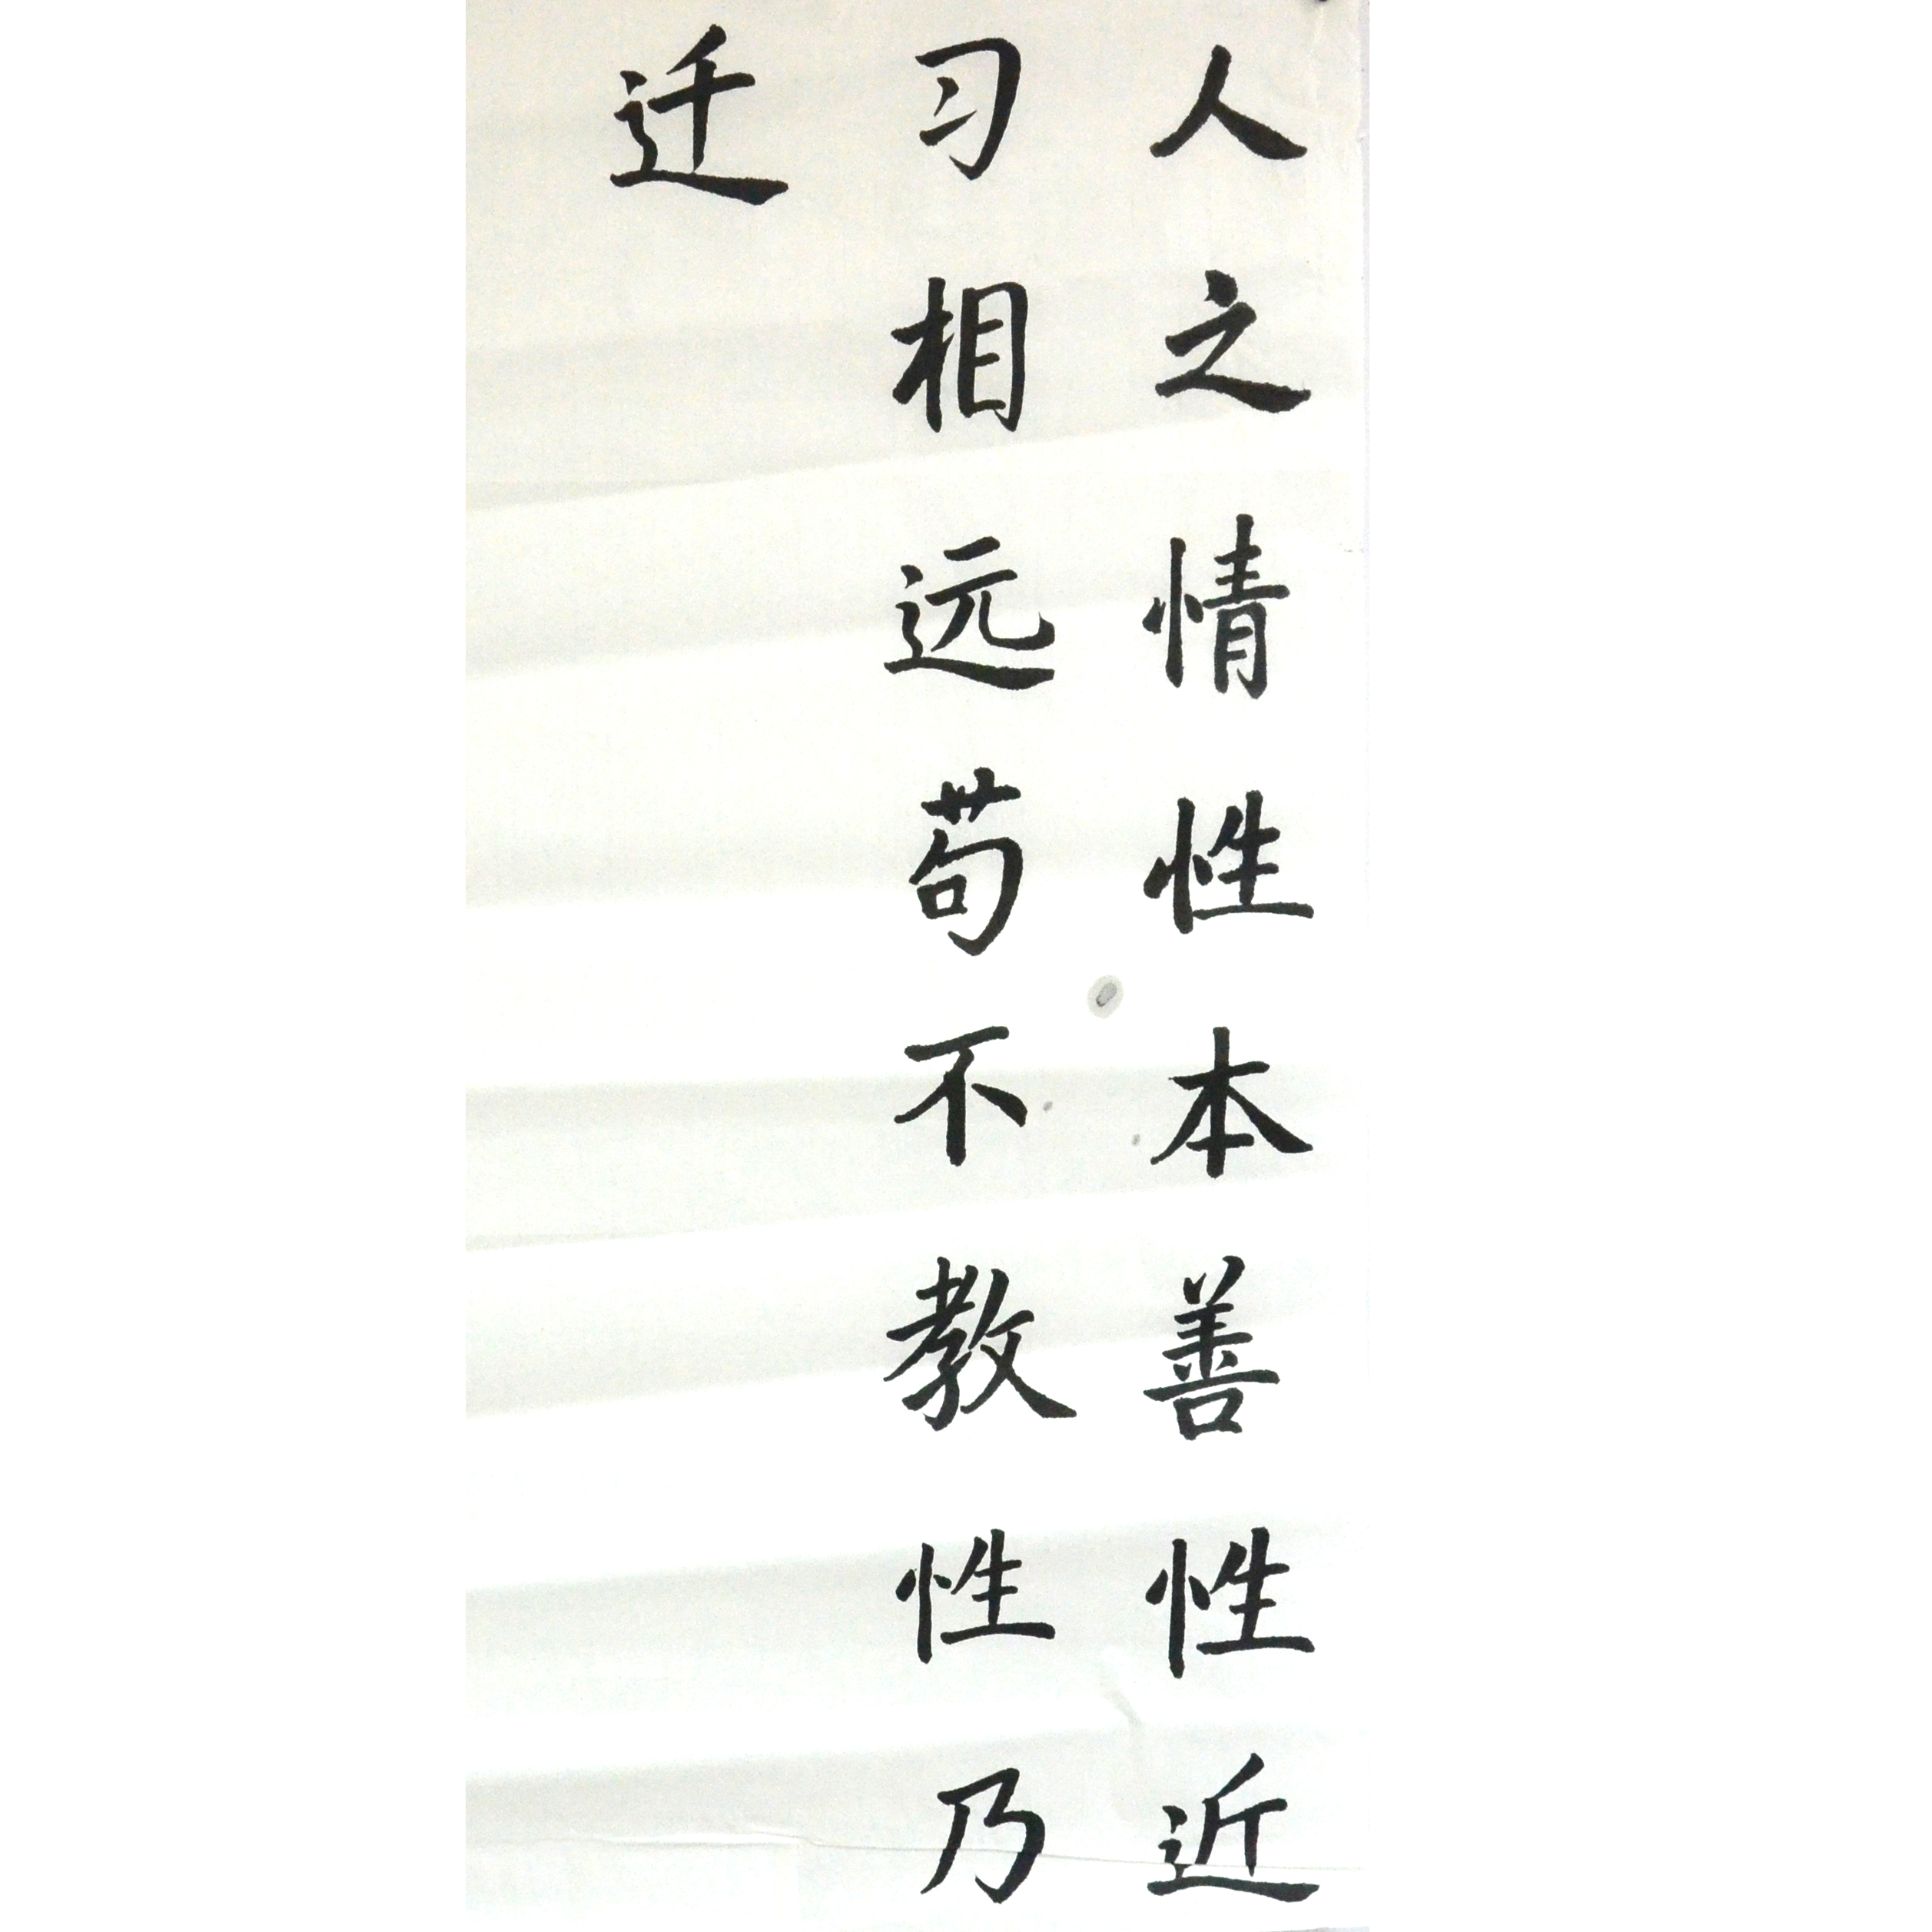 人之情性本善性近
习相远苟不教性乃
迁